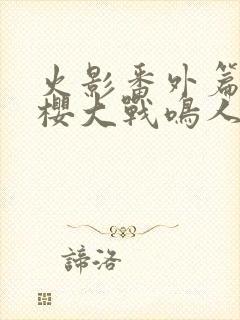 火影番外篇
櫻大戰鳴人
諦洛